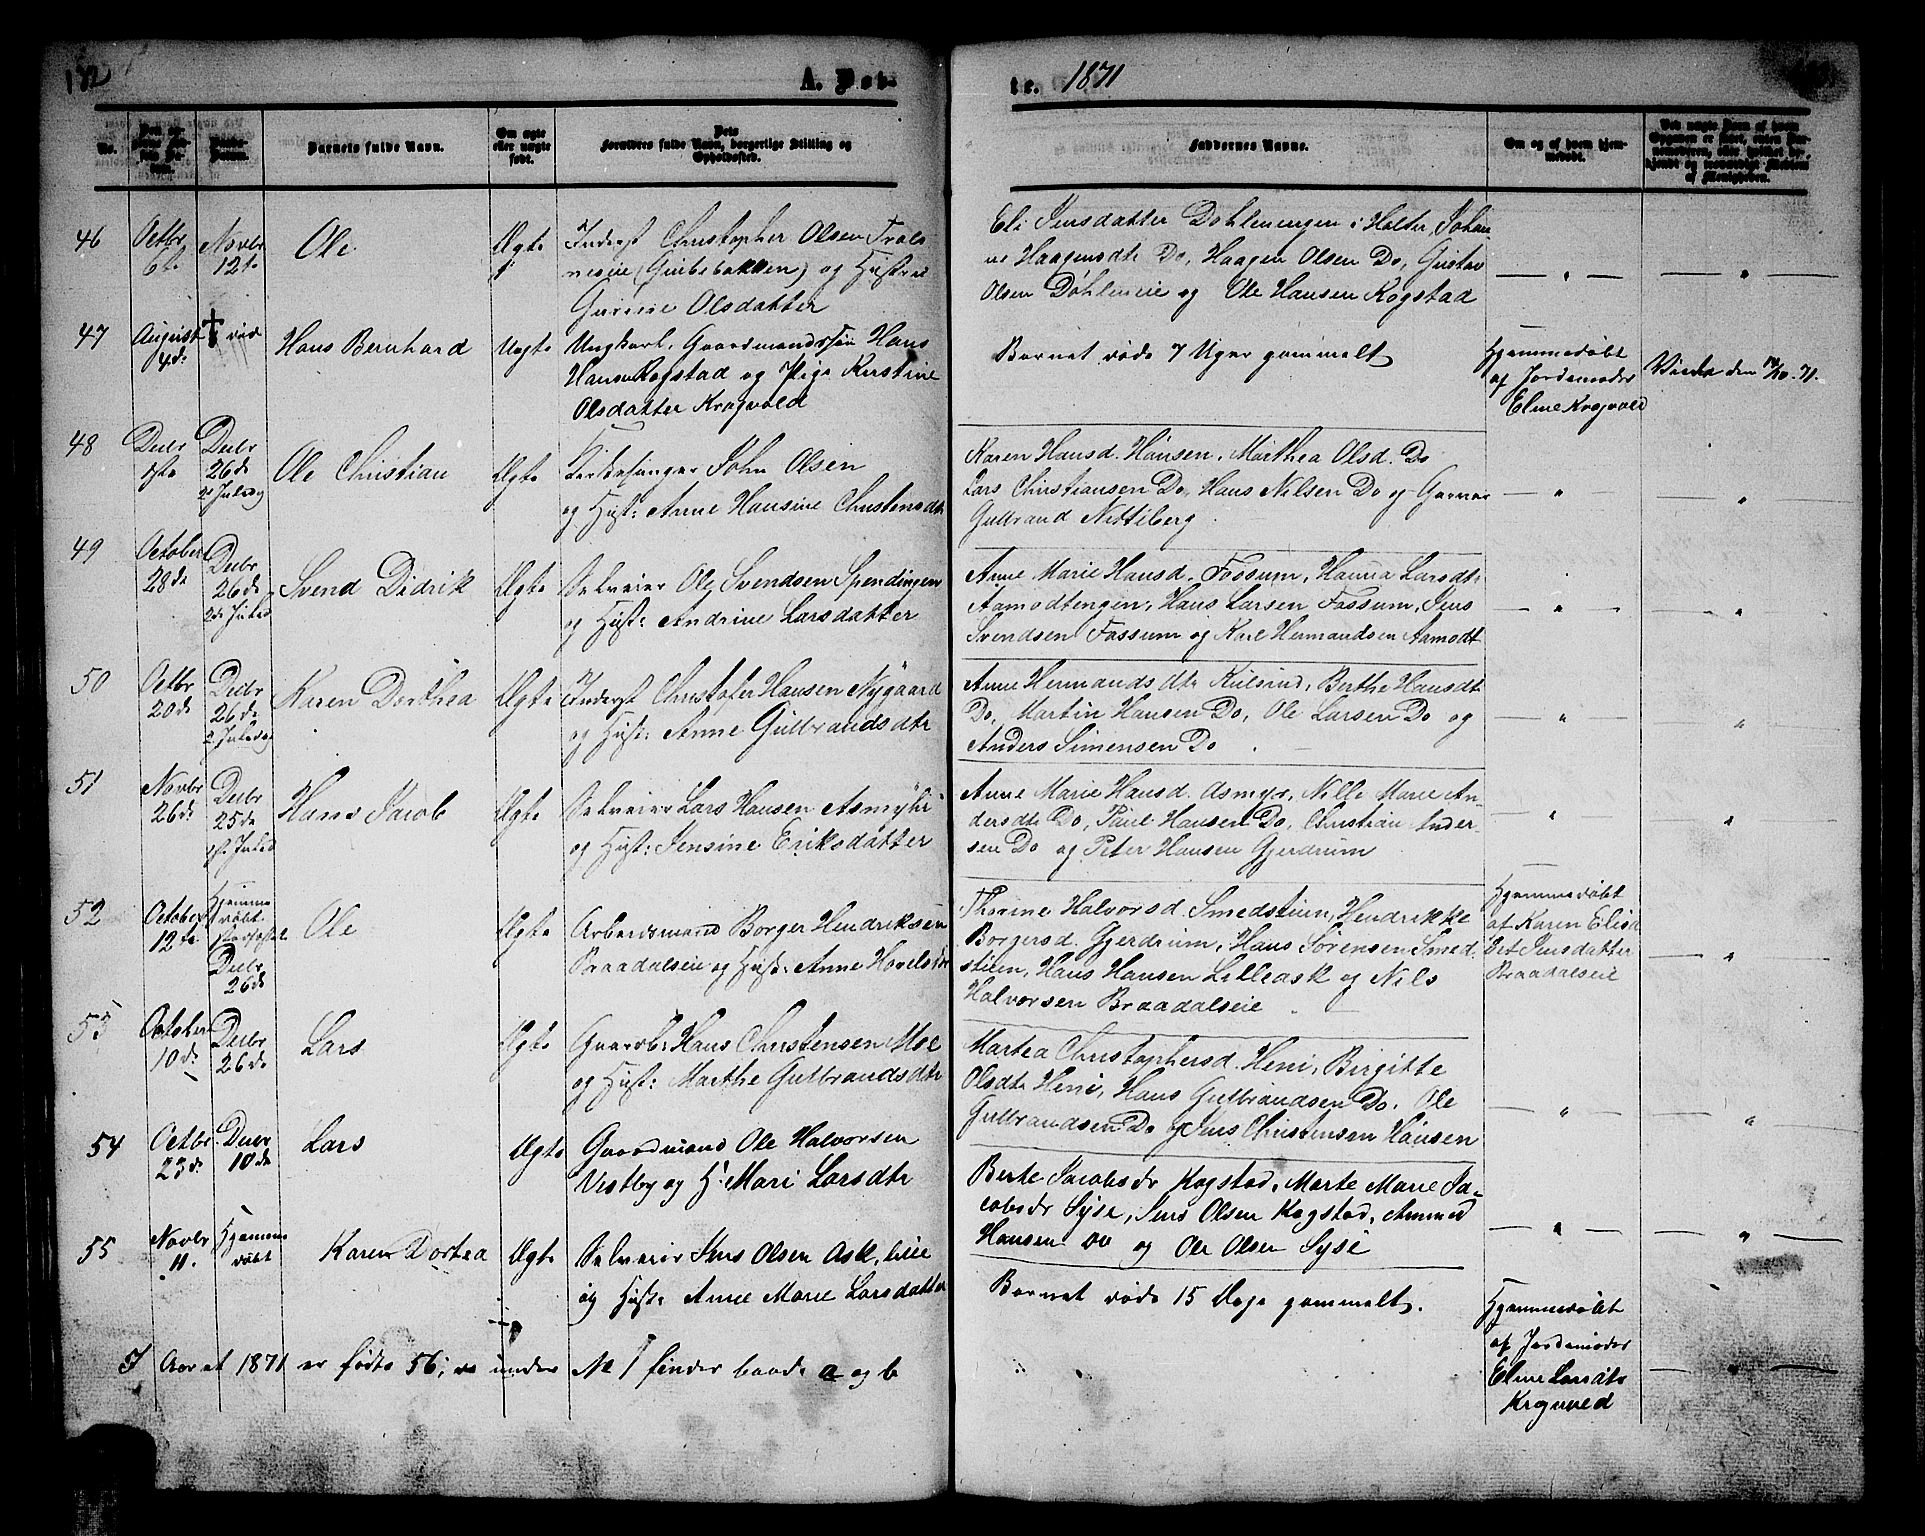 182
A. Døb-
te. 1871
No.
Barnets fulde Navn.
Om ægte eller uægte født.
Forældres fulde Navn, borgerlige Stilling og
Opholdssted.
Faddernes Navne.
Om og af hvem hjem-
medøbt.
46
Octbr
6te
Novbr
12te
Ole
Ægte
Inderst Christopher Olsen
og Hustru
Olsdatter
Eli Jensdatter Dohlenengen i Holter, Johan-
ne Haagensdtr Do, Haagen Olsen Do, Gustav
Olsen Døhleneie og Ole Hansen Kogstad
47
August
4de
† død
Hans Bernhard
Uægte
Ungkarl, Gaardmandssøn Hans
Hansen Kogstad og Pige Kirstine
Olsdatter Krogvold
Barnet døde 7 Uger gammelt
Hjemmedøbt
af Jordemoder
Eline Krogvold
48
Decbr
1ste
Decbr
26de
2d Juledag
Ole Christian
Ægte
Kirkesanger John Olsen
og Hust: Anne Hansine Christensdtr
Karen Hansd. Hansen, Marthea Olsd. Do
Lars Christiansen Do, Hans Nilsen Do og
Gulbrand Nittiberg
49
October
28de
Decbr
26de
Svend Didrik
Ægte
Selveier Ole Svendsen Spendingen
og Hust: Andrine Larsdatter
Anne Marie Hansd. Fossum, Hanna Larsdtr
Aamodtengen, Hans Larsen Fossum, Jens
Svendsen Fossum og Karl Hermandsen Aamodt
50
Octbr
20de
Decbr
26de
2. Juledag
Karen Dorthea
Ægte
Inderst Christofer Hansen Nygaard
og Hust: Anne Gulbrandsdtr
Anne Hermandsdtr Kulsrud, Berthe Hansdtr
Do, Martin Hansen Do, Ole Larsen Do og
Anders Simensen Do
51
Novbr
26de
Decbr
25de
Hans Jacob
Ægte
Selveier Lars Hansen Asmyhr
og Hust: Jensine Eriksdatter
Anne Marie Hansd. Asmyr, Nille Marie An-
dersdtr Do, Paul Hansen Do, Christian Ander-
sen Do og Peter Hansen Gjerdrum
52
October
12te
Hjemme
døbt
Decbr
26de
Ole
Ægte
Arbeidsmand Borger Hendriksen
Braadalseie og Hust: Anne
Thorine Halvorsd. Smedstuen, Hendrikke
Borgersd. Gjerdrum, Hans Sørensen Smed
stuen, Hans Hansen Lilleask og Nils
Halvorsen Braadalseie
Hjemmedøbt
af Karen Elisa
bet Jensdatter
Braadalseie
53
October
10de
Decbr
26de
Lars
Ægte
Gaardb: Hans Christensen Moe
og Hust: Marthe Gulbrandsdtr
Martea Christophersd. Heni, Birgitte
Olsdtr Heni, Hans Gulbrandsen Do, Ole
Gulbrandsen Do og Jens Christensen Hansen
54
Octbr
23de
Decbr
10de
Lars
Ægte
Gaardmand Ole Halvorsen
Vestby og H: Mari Larsdtr
Berte Jacobsdr Kogstad, Marte Marie Ja-
cobsdr Syse, Jens Olsen Kogstad,
Hansen Do og Ole Olsen Syse
55
Novbr
11.
Hjemme
døbt
Karen Dortea
Ægte
Selveier Jens Olsen Ask,
og Hust: Anne Marie Larsdatter
Barnet døde 15 Dage gammelt.
Hjemmedøbt
af Jordemoder
Eline Larsdtr
Krogvold
I Aaret 1871 er fødte 56; da under No 1 findes baade a og b